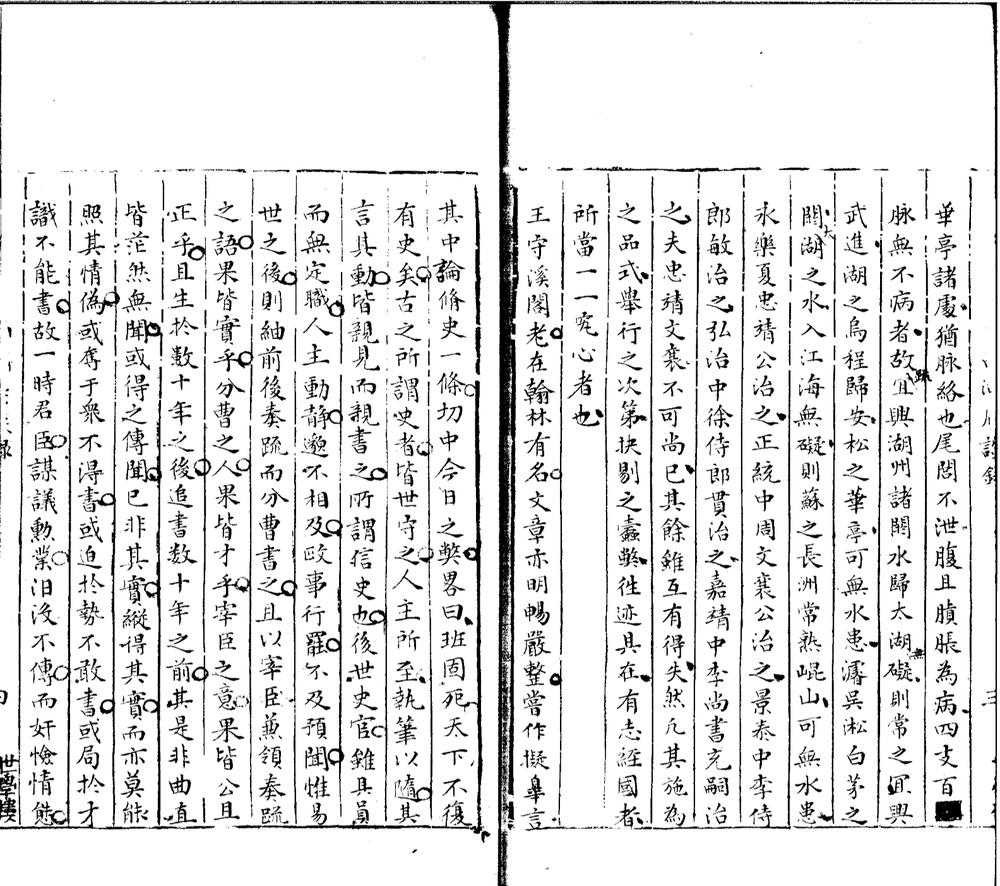 華亭諸處猶脉絡也尾閭不泄腹且膹脹為病四支百
脉無不病者故疏宜興湖州諸閘水歸太湖無礙則常之宜興
武進湖之烏程歸安松之華亭可無水患濬吳淞白茅之
閘太湖之水入江海無礙則蘇之長洲常熟崐山可無水患
永樂夏忠靖公治之正統中周文襄公治之景泰中李侍
郎敏治之弘治中徐侍郎貫治之嘉靖中李尚書充嗣治
之夫忠靖文襄不可尚已其餘雖互有得失然凡其施為
之品式舉行之次第抉剔之蠹弊徃迹具在有志經國者
所當一一究心者也
王守溪閣老在翰林有名文章亦明暢嚴整嘗作擬辠言
其中論脩史一條切中今日之弊畧曰班固死天下不復
有史矣古之所謂史者皆世守之人主所至執筆以隨其
言其動皆親見而親書之所謂信史也後世史官雖具員
而無定職人主動静邈不相及政事行罷不及預聞惟易
世之後則紬前後奏疏而分曹書之且以宰臣兼領奏疏
之語果皆實乎分曹之人果皆才乎宰臣之意果皆公且
正乎且生於数十年之後追書数十年之前其是非曲直
皆茫然無聞或得之傳聞已非其實縱得其實而亦莫能
照其情偽或奪于衆不得書或迫於勢不敢書或局於才
識不能書故一時君臣謀議勲業汨没不傳而奸憸情態
世學樓